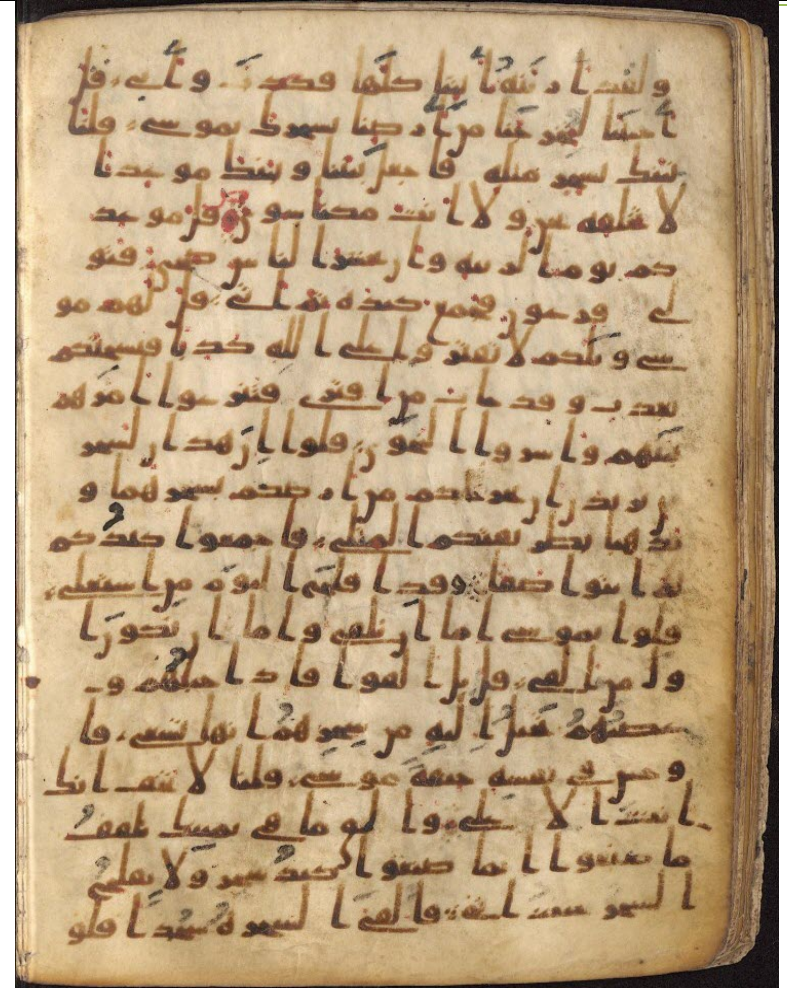 ولقد ارينه ايتنا كلها فكذب وابى قل
اجئتنا لتخرجنا من ارضنا بسحرك يموسى فلنا
تينك بسحر مثله فاجعل بيننا وبينك موعدا
لا نخلفه نحن ولا انت مكنا سوى قل موعد
كم يوم الزينه وان يحشر الناس ضحى فتو
لى فرعون فجمع كيده ثم اتى قل لهم مو
سى ويلكم لا تفتروا على الله كذبا فيسحتكم
بعذاب وقد خاب من افترى فتنزعوا امرهم
بينهم واسروا النجوى قلوا ان هذن لسحر
ن يريدن ان يخرجاكم من ارضكم بسحرهما و
يذهبا بطريقتكم المثلى فاجمعوا كيدكم
ثم ائتوا صفا وقد افلح اليوم من استعلى
قلوا يموسى اما ان تلقى واما ان نكون ا
ول من القى قل بل القوا فاذا حبلهم و
عصيهم يخيل اليه من سحرهم انها تسعى فا
وجس في نفسه خيفه موسى قلنا لا تخف انك
انت الاعلى والق ما في يمينك تلقف
ما صنعوا انما صنعوا كيد سحر ولا يفلح
السحر حيث اتى فالقى السحره سجدا قلو